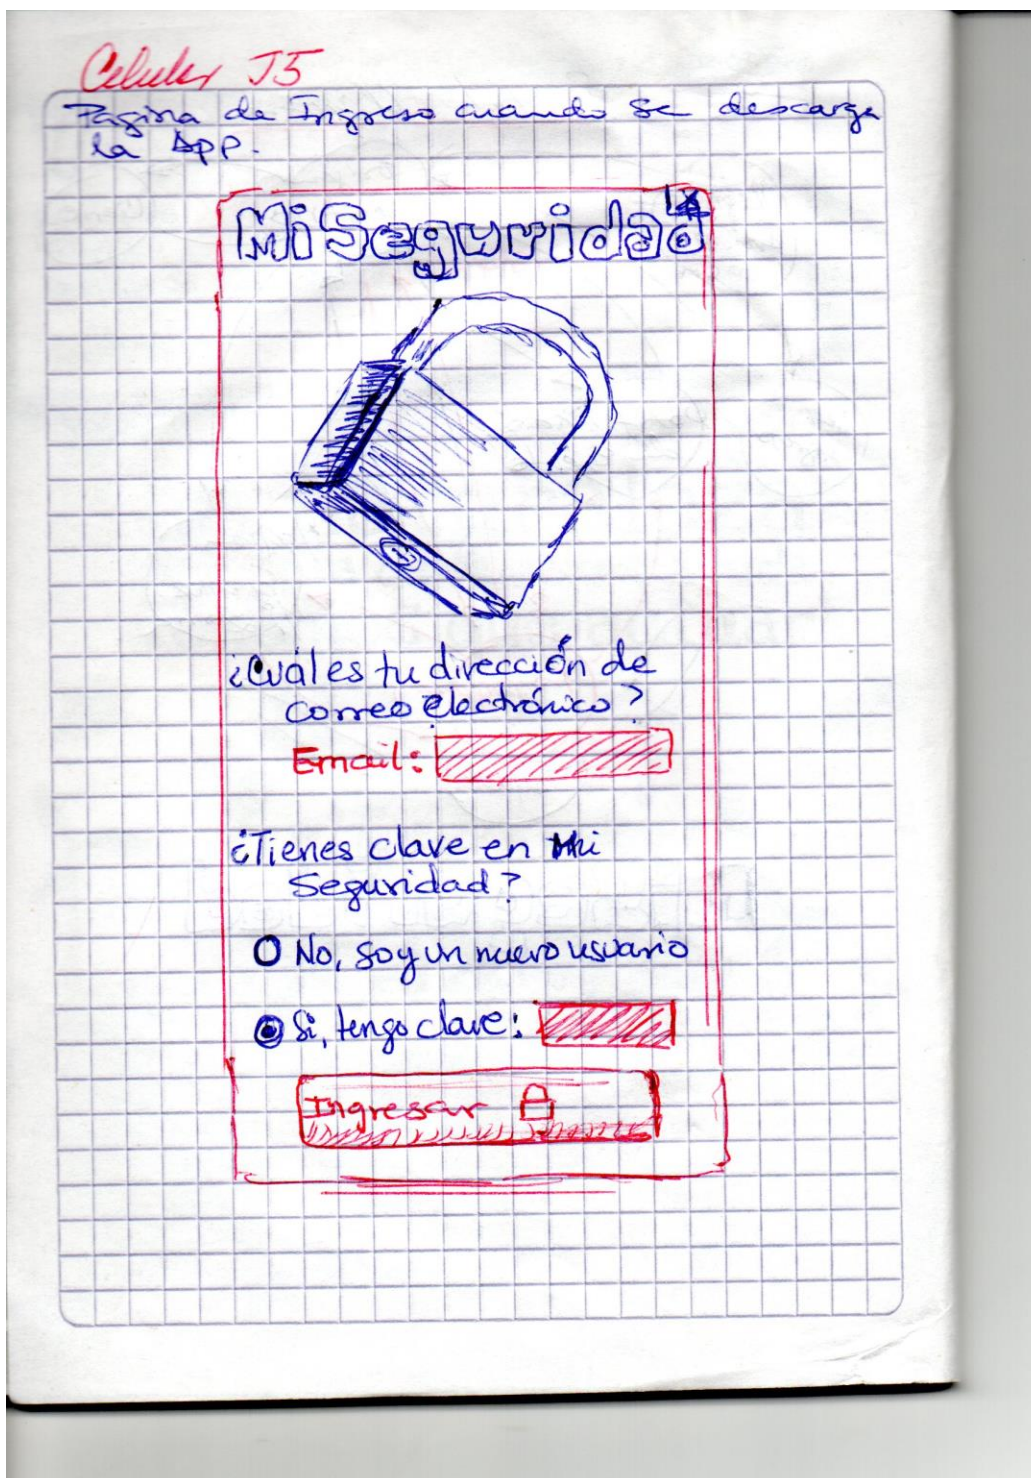 Celular J5
Pagina de Ingreso cuando se descarga
la App.
Mi Seguridad
X
¿Cuál es tu dirección de
correo electrónico?
Email:
¿Tienes clave en Mi
Seguridad?
No, soy un nuevo usuario
Si, tengo clave:
Ingresar